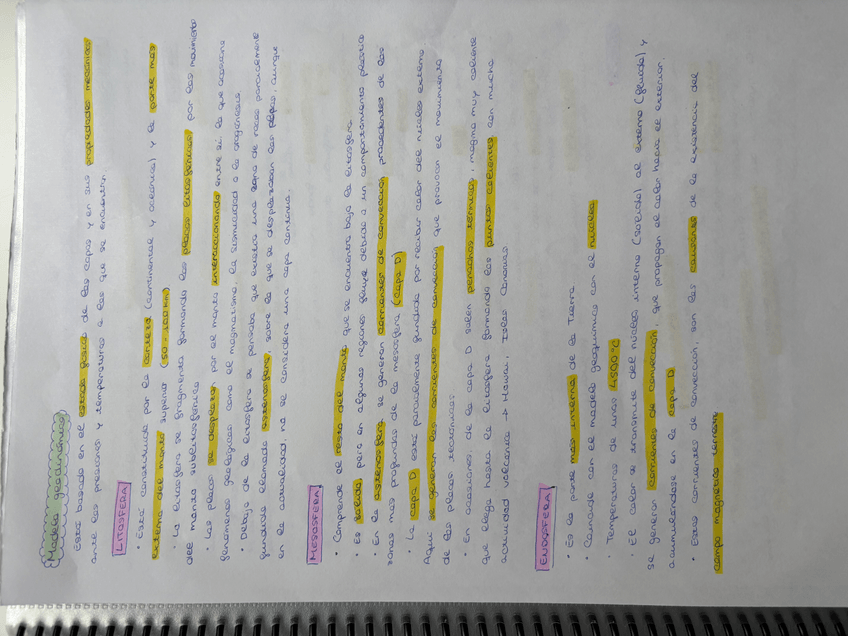 Modelo geodinámico
Está basado en el estado físico de las capas y en sus propiedades mecánicas
ante las presiones y temperaturas a las que se encuentran.
LITOSFERA
• Está constituida por la corteza (continental y oceánica) y la parte más
externa del manto superior (50-100 km)
• La litosfera se fragmenta formando las placas litosféricas por los movimientos
del manto sublitosférico
• Las placas se desplazan por el manto interaccionando entre sí, lo que origina
fenómenos geológicos como el magmatismo, la sismicidad o la orogénesis
• Debajo de la litosfera se pensaba que existía una zona de rocas parcialmente
fundidas llamada astenosfera, sobre la que se desplazaban las placas, aunque
en la actualidad no se considera una capa continua.
MESOSFERA
• Comprende el resto del manto que se encuentra bajo la litosfera
• Es sólida, pero en algunas regiones fluye debido a un comportamiento plástico
• En la astenosfera se generan corrientes de convección procedentes de las
zonas más profundas de la mesosfera (capa D)
• La capa D está parcialmente fundida por recibir calor del núcleo externo
Aquí se generan las corrientes de convección que provocan el movimiento
de las placas tectónicas.
• En ocasiones, de la capa D salen penachos térmicos, magma muy caliente
que llega hasta la litosfera formando los puntos calientes con mucha
actividad volcánica → Hawai, Islas Canarias
ENDOSFERA
• Es la parte más interna de la Tierra
• Coincide con el modelo geoquímico con el núcleo
• Temperaturas de unos 4500°C
• El calor se transmite del núcleo interno (sólido) al externo (fluido) y
se generan corrientes de convección, que propagan el calor hacia el exterior,
acumulándose en la capa D
• Estas corrientes de convección, son las causantes de la existencia del
campo magnético terrestre